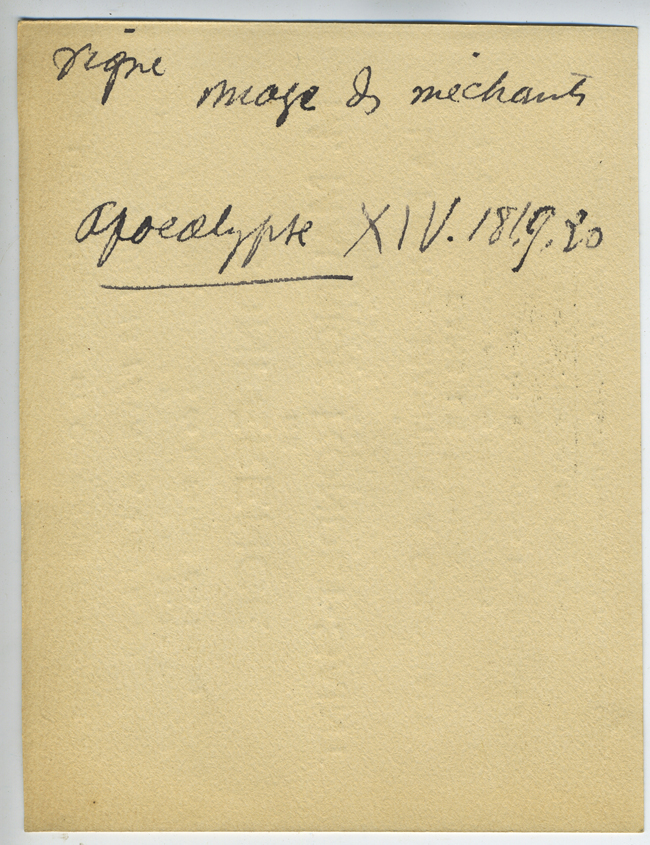 vigne
image des méchants
Apocalypse XIV. 18.19.20